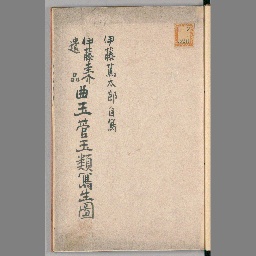 伊藤篤太郎自寫
伊藤圭介
遺品
曲玉管玉類寫生圖